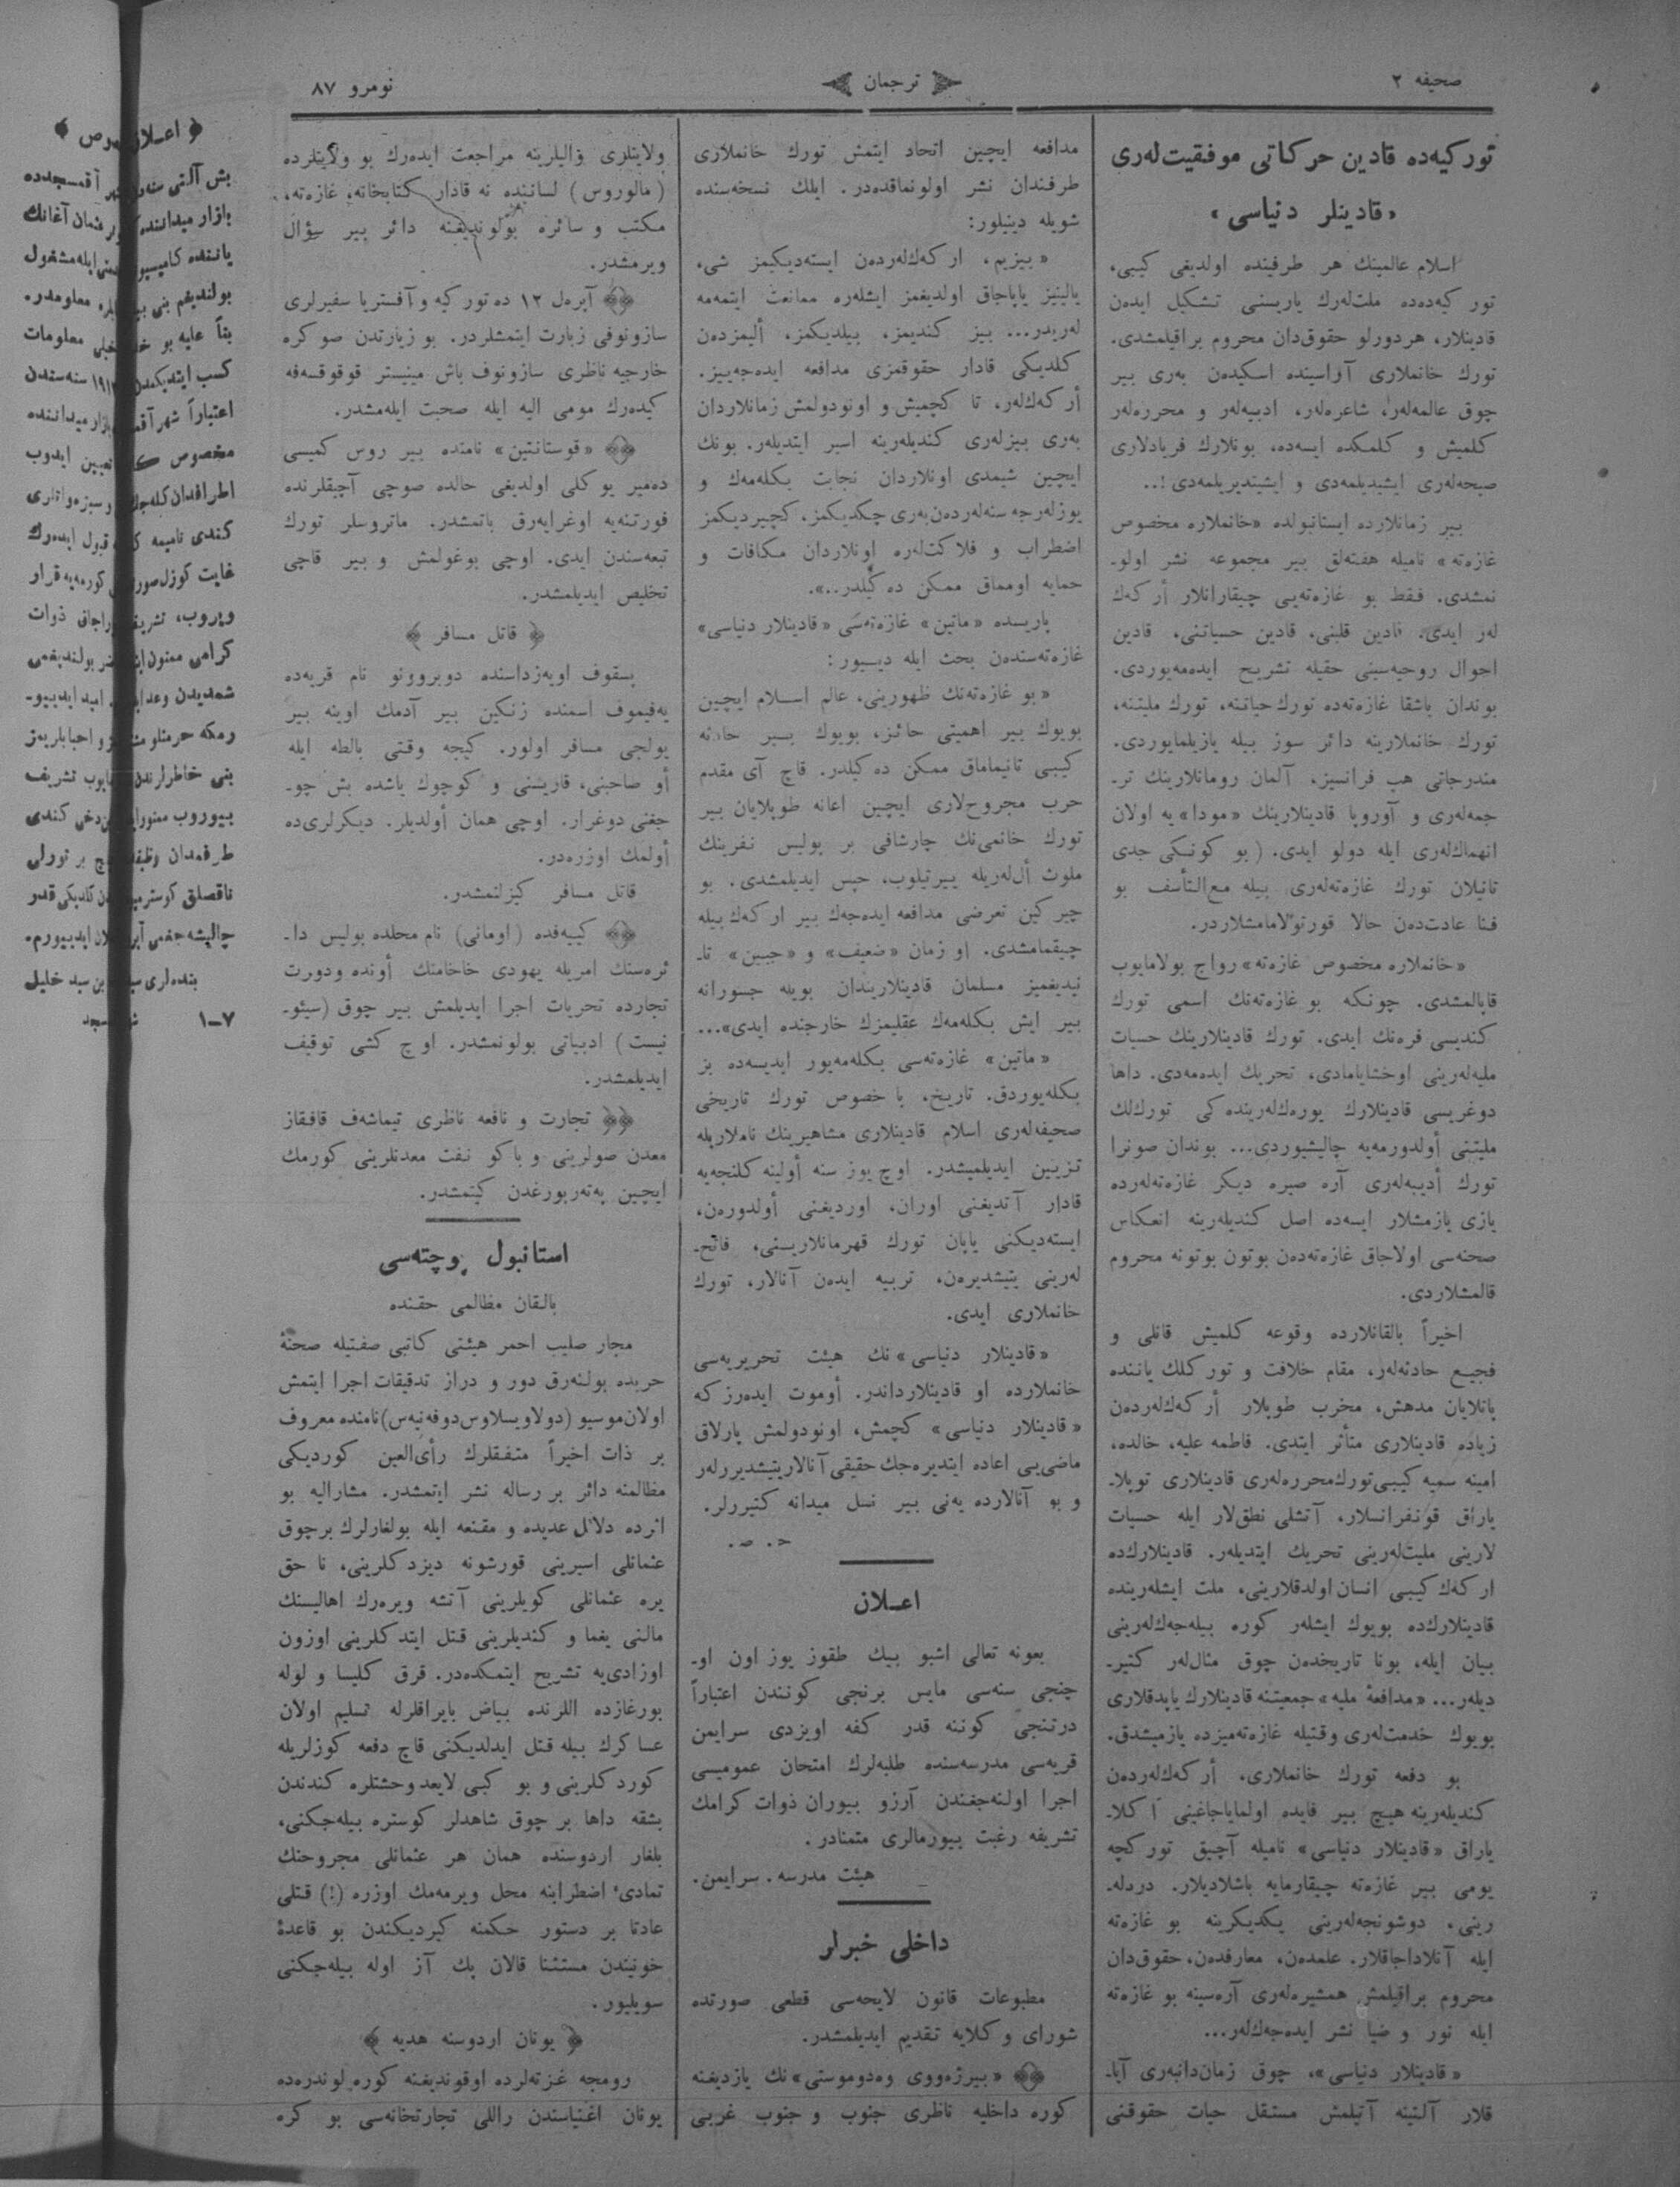 صحیفه ٢
ترجمان
نومرو ٨٧
تورکیه‌ده قادین حرکاتی موفقیت‌لەری
«قادینلر دنیاسی»
اسلام عالمینك هر طرفینده اولدیغی کیبی،
تورکیه‌ده‌ده ملت‌لەرك یاریسنی تشکیل ایدەن
قادینلار، هردورلو حقوق‌دان محروم براقیلمشدی.
تورك خانملاری آراسینده اسکیدەن بەری بیر
چوق عالمەلەر، شاعرەلەر، ادیبەلەر و محررەلەر
کلمیش و کلمکده ایسەده، بونلارك فریادلاری
صیحەلەری ایشیدیلمەدی و ایشیتدیریلمەدی !..
بیر زمانلارده ایستانبولده «خانملاره مخصوص
غازەتە» نامیله هفتەلق بیر مجموعه نشر اولو-
نمشدی. فقط بو غازەتەیی چیقارانلار أرکەك
لەر ایدی. قادین قلبنی، قادین حسیاتنی، قادین
احوال روحیەسینی حقیله تشریح ایدەمەیوردی.
بوندان باشقا غازەتەده تورك حیاتنه، تورك ملیتنه،
تورك خانملارینه دائر سوز بیله یازیلمایوردی.
مندرجاتی هپ فرانسیز، آلمان رومانلارینك تر-
جمەلەری و آوروپا قادینلارینك «مودا»یه اولان
انهماك‌لەری ایله دولو ایدی. (بو کونکی جدی
تانیلان تورك غازەتەلەری بیله مع‌التأسف بو
فنا عادت‌دەن حالا قورتولامامشلاردر.
«خانملاره مخصوص غازەتە» رواج بولامایوب
قاپالمشدی. چونکه بو غازەتەنك اسمی تورك
کندیسی فرەنك ایدی. تورك قادینلارینك حسیات
ملیەلەرینی اوخشایامادی، تحریك ایدەمەدی. داها
دوغریسی قادینلارك یورەك‌لەریندەکی تورك‌لك
ملیتنی أولدورمەیه چالیشیوردی... بوندان صونرا
تورك أدیبەلەری آره صیره دیکر غازەتەلەرده
یازی یازمشلار ایسەده اصل کندیلەرینه انعکاس
صحنەسی اولاجاق غازەتەدەن بوتون بوتونه محروم
قالمشلاردی.
اخیراً بالقانلارده وقوعه کلمیش قانلی و
فجیع حادثەلەر، مقام خلافت و تورکلك یاننده
پاتلایان مدهش، مخرب طوپلار أرکەك‌لەردەن
زیاده قادینلاری متأثر ایتدی. فاطمه علیه، خالده،
امینه سمیه کیبی تورك‌محررەلەری قادینلاری توپلا-
یاراق قونفرانسلار، آتشلی نطق‌لار ایله حسیات
لارینی ملیت‌لەرینی تحریك ایتدیلەر. قادینلارك‌ده
ارکەك کیبی انسان اولدقلارینی، ملت ایشلەرینده
قادینلارك‌ده بویوك ایشلەر کوره بیلەجەك‌لەرینی
بیان ایله، بونا تاریخدەن چوق مثال‌لەر کتیر-
دیلەر... «مدافعۀ ملیه» جمعیتنه قادینلارك یاپدقلاری
بویوك خدمت‌لەری وقتیله غازەتەمیزده یازمیشدق.
بو دفعه تورك خانملاری، أرکەك‌لەردەن
کندیلەرینه هیچ بیر فایده اولمایاجاغینی آکلا-
یاراق «قادینلار دنیاسی» نامیله آچیق تورکچه
یومی بیر غازەتە چیقارمایه باشلادیلار. دردلە-
رینی، دوشونجەلەرینی یکدیکرینه بو غازەتە
ایله آنلاداجاقلار. علمدەن، معارفدەن، حقوق‌دان
محروم براقیلمش همشیرەلەری آرەسینه بو غازەتە
ایله نور و ضیا نشر ایدەجەك‌لەر...
«قادینلار دنیاسی»، چوق زمان‌دانبەری آیا-
قلار آلتینه آتیلمش مستقل حیات حقوقنی
مدافعه ایچین اتحاد ایتمش تورك خانملاری
طرفندان نشر اولونماقدەدر. ایلك نسخەسنده
شویله دینیلور:
«بیزیم، ارکەك‌لەردەن ایستەدیکیمز شی،
یالینیز یاپاجاق اولدیغمز ایشلەره ممانعت ایتمەمە
لەریدر... بیز کندیمز، بیلدیکمز، ألیمزدەن
کلدیکی قادار حقوقمزی مدافعه ایدەجەییز.
أرکەك‌لەر، تا کچمیش و اونودولمش زمانلاردان
بەری بیزلەری کندیلەرینه اسیر ایتدیلەر. بونك
ایچین شیمدی اونلاردان نجابت بکلەمەك و
یوزلەرجه سنەلەردەن‌بەری چکدیکمز، کچیردیکمز
اضطراب و فلاکت‌لەره اونلاردان مکافات و
حمایه اومماق ممکن دەکیلدر..».
پاریسده «ماتین» غازەتەسی «قادینلار دنیاسی»
غازەتەسندەن بحث ایله دییور:
«بو غازەتەنك ظهورینی، عالم اسلام ایچین
بویوك بیر اهمیتی حائز، بویوك بیر حادثه
کیبی تانیماماق ممکن دەکیلدر. قاچ آی مقدم
حرب مجروح‌لاری ایچین اعانه طوپلایان بیر
تورك خانمی‌نك چارشافی بر پولیس نفرینك
ملوث أل‌لەریله ییرتیلوب، حبس ایدیلمشدی. بو
چیرکین تعرضی مدافعه ایدەجەك بیر ارکەك بیله
چیقمامشدی. او زمان «ضعیف» و «جبین» تا-
نیدیغمیز مسلمان قادینلاریندان بویله جسورانه
بیر ایش بکلەمەك عقلیمزك خارجنده ایدی»...
«ماتین» غازەتەسی بکلەمەیور ایدیسەده بز
بکلەیوردق. تاریخ، با خصوص تورك تاریخی
صحیفەلەری اسلام قادینلاری مشاهیرینك نامالاریله
تزیین ایدیلمیشدر. اوچ یوز سنه أولینه کلنجەیه
قادار آتدیغنی اوران، اوردیغنی أولدورەن،
ایستەدیکنی یاپان تورك قهرمانلارینی، فاتح-
لەرینی یتیشدیرەن، تربیه ایدەن آنالار، تورك
خانملاری ایدی.
«قادینلار دنیاسی»نك هیئت تحریریەسی
خانملارده او قادینلارداندر. أوموت ایدەرزکه
«قادینلار دنیاسی» کچمش، اونودولمش پارلاق
ماضی‌یی اعاده ایتدیرەجك حقیقی آنالاریتیشدیررلەر
و بو آنالارده یەنی بیر نسل میدانه کتیررلر.
ح. ص.
اعلان
بعونه تعالی اشبو بیك طقوز یوز اون او-
چنجی سنەسی مایس برنجی کونندن اعتباراً
درتنجی کوننه قدر کفه اویزدی سرایمن
قریەسی مدرسەسنده طلبەلرك امتحان عمومیسی
اجرا اولنەجغندن آرزو بیوران ذوات کرامك
تشریفه رغبت بیورمالری متمنادر.
هیئت مدرسه. سرایمن.
داخلی خبرلر
مطبوعات قانون لایحەسی قطعی صورتده
شورای وکلایه تقدیم ایدیلمشدر.
«بیرژەووی وەدوموستی»نك یازدیغنه
کوره داخلیه ناظری جنوب و جنوب غربی
ولایتلری والیلرینه مراجعت ایدەرك بو ولایتلرده
(مالوروس) لساننده نه قادار کتابخانه، غازەتە،
مکتب و سائره بولوندیغینه دائر بیر سؤال
ویرمشدر.
آپرەل ١٢ ده تورکیه و آفستریا سفیرلری
سازونوفی زیارت ایتمشلردر. بو زیارتدن صوکره
خارجیه ناظری سازونوف باش مینیستر قوقوفسەفه
کیدەرك مومی الیه ایله صحبت ایلەمشدر.
«قوستانتین» نامنده بیر روس کمیسی
دەمیر یوکلی اولدیغی حالده صوچی آچیقلرنده
فورتنەیه اوغرایەرق باتمشدر. ماتروسلر تورك
تبعەسندن ایدی. اوچی بوغولمش و بیر قاچی
تخلیص ایدیلمشدر.
﴿ قاتل مسافر ﴾
پسقوف اویەزداسنده دوبروونو نام قریەده
یەفیموف اسمنده زنکین بیر آدمك اوینه بیر
یولجی مسافر اولور. کیجه وقتی بالطه ایله
أو صاحبنی، قاریسنی و کوچوك یاشده بش چو-
جغنی دوغرار. اوچی همان أولدیلر. دیکرلری‌ده
أولمك اوزرەدر.
قاتل مسافر کیزلنمشدر.
کییەفده (اومانی) نام محلده پولیس دا-
ئرەسنك امریله یهودی خاخامنك أونده ودورت
تجارده تحریات اجرا ایدیلمش بیر چوق (سیئو-
نیست) ادبیاتی بولونمشدر. اوچ کشی توقیف
ایدیلمشدر.
تجارت و نافعه ناظری تیماشەف قافقاز
معدن صولرینی و باکو نفت معدنلرینی کورمك
ایچین پەتەربورغدن کیتمشدر.
استانبول پوچتەسی
بالقان مظالمی حقنده
مجار صلیب احمر هیئتی کاتبی صفتیله صحنۀ
حربده بولنەرق دور و دراز تدقیقات اجرا ایتمش
اولان‌موسیو (دولاویسلاوس‌دوفەنیەس) نامنده معروف
بر ذات اخیراً متفقلرك رأی‌العین کوردیکی
مظالمنه دائر بر رساله نشر ایتمشدر. مشارالیه بو
اثرده دلائل عدیده و مقنعه ایله بولغارلرك برچوق
عثمانلی اسیرینی قورشونه دیزدکلرینی، نا حق
یره عثمانلی کویلرینی آتشه ویرەرك اهالیسنك
مالنی یغما و کندیلرینی قتل ایتدکلرینی اوزون
اوزادی‌یه تشریح ایتمکدەدر. قرق کلیسا و لوله
بورغازده اللرنده بیاض بایراقلرله تسلیم اولان
عساکرك بیله قتل ایدلدیکنی قاچ دفعه کوزلریله
کوردکلرینی و بو کبی لایعد وحشتلره کندندن
بشقه داها بر چوق شاهدلر کوستره بیلەجکنی،
بلغار اردوسنده همان هر عثمانلی مجروحنك
تمادیٔ اضطرابنه محل ویرمەمك اوزره (!) قتلی
عادتا بر دستور حکمنه کیردیکندن بو قاعدۀ
خونیندن مستثنا قالان پك آز اوله بیلەجکنی
سویلیور.
﴿ یونان اردوسنه هدیه ﴾
رومجه غزتەلرده اوقوندیغنه کوره لوندرەده
یونان اغنیاسندن راللی تجارتخانەسی بو کره
بش آلتی سنه
آقمسجدده
بازار میداننده
عثمان آغانك
یاننده
ایله مشغول
بولندیغم
معلومدر.
بناً علیه بو
معلومات
کسب ایتدیکمدن
سنەسندن
اعتباراً شهر
بازار میداننده
مخصوص
تعیین ایدوب
اطرافدان
کندی نامیمه
قبول ایدەرك
غایت کوزل
کورمەیه قرار
ویروب،
ذوات
کرامی ممنون
بولندیغمی
شمدیدن وعد
امید ایدییو-
رمکه حرمتلو
و احبابلریمز
بنی خاطرلرندن
تشریف
بیوروب
دخی کندی
طرفمدان
بر تورلی
ناقصلق
کلدیکی قدر
چالیشەجغمی
ایدییورم.
بندەلری
بن سید خلیل
٧–١